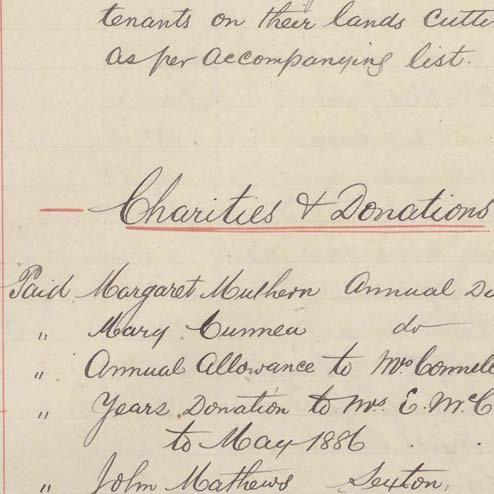 tenants on their lands cutti
as per accompanying list.
Charities & Donations
Paid Margaret Mulhern Annual Do
" Mary Cunnea do
" Annual Allowance to Mrs Connel
" Years Donation to Mrs E. McC
to May 1886 . .
" John Mathews Sexton,